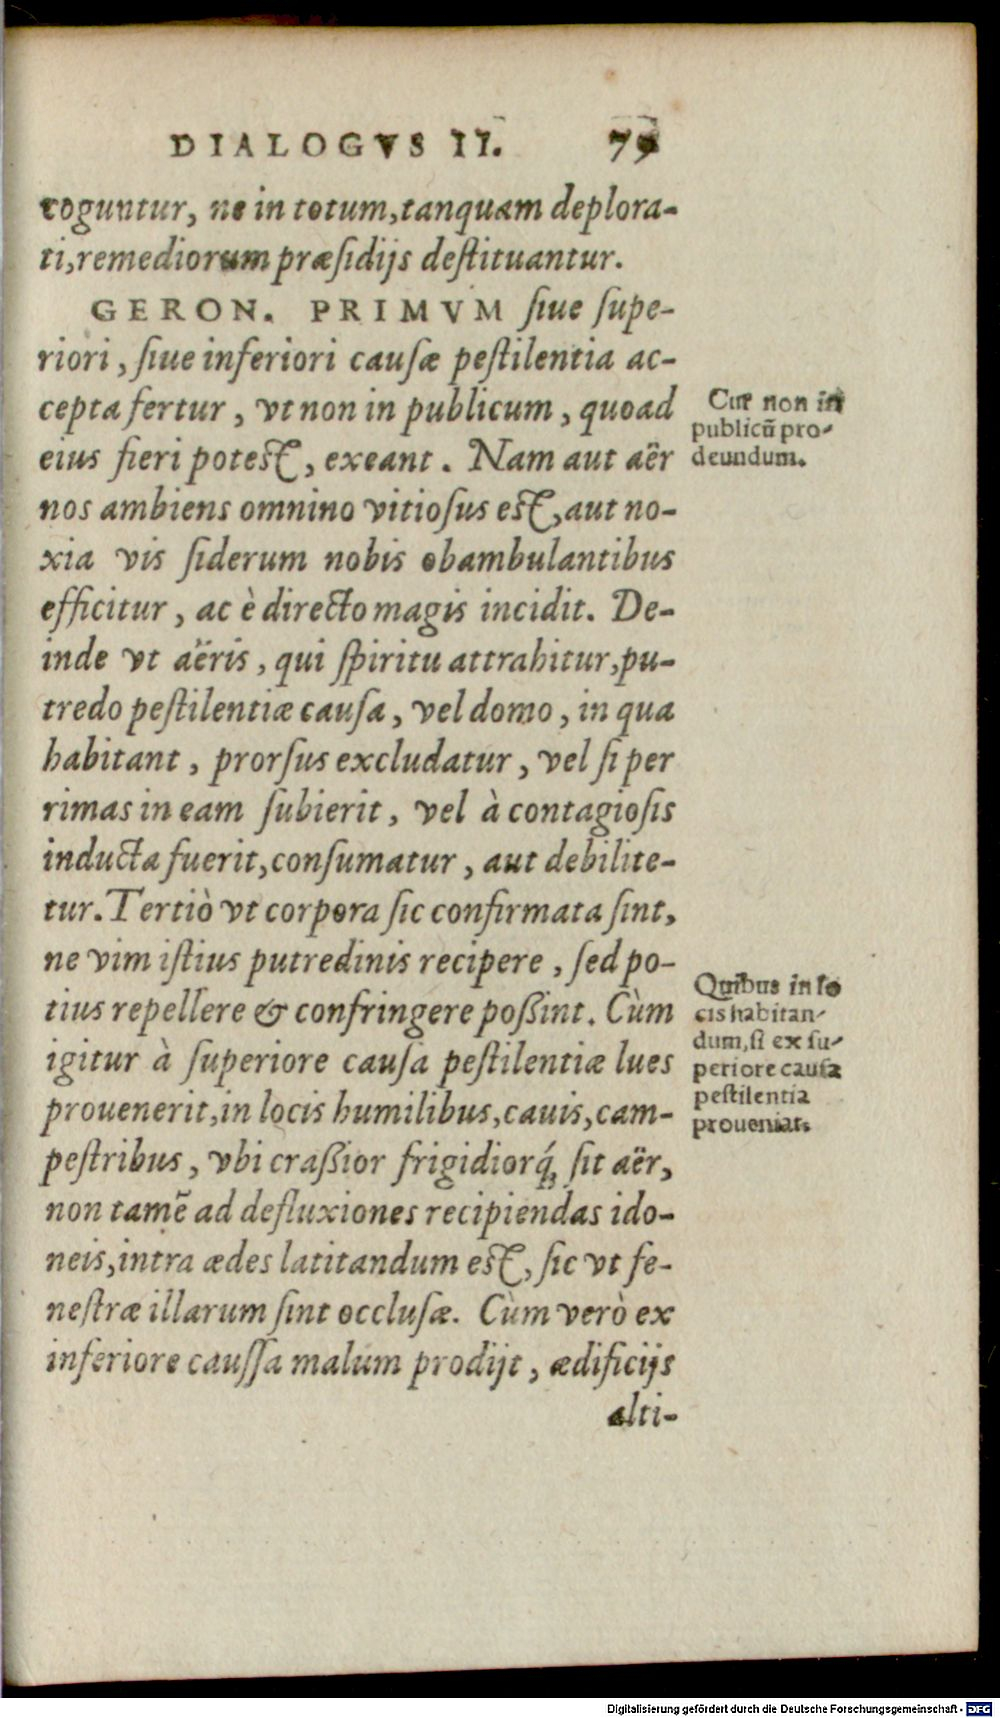 DIALOGVS II. 79
coguntur, ne in totum, tanquam deplora-
ti, remediorum præsidijs destituantur.
GERON. PRIMVM siue supe-
riori, siue inferiori causæ pestilentia ac-
cepta fertur, vt non in publicum, quoad
eius fieri potest, exeant. Nam aut aër
nos ambiens omnino vitiosus est, aut no-
xia vis siderum nobis obambulantibus
efficitur, ac è directo magis incidit. De-
inde vt aëris, qui spiritu attrahitur, pu-
tredo pestilentiæ causa, vel domo, in qua
habitant, prorsus excludatur, vel si per
rimas in eam subierit, vel à contagiosis
inducta fuerit, consumatur, aut debilite-
tur. Tertiò vt corpora sic confirmata sint,
ne vim istius putredinis recipere, sed po-
tius repellere & confringere poßint. Cùm
igitur à superiore causa pestilentiæ lues
prouenerit, in locis humilibus, cauis, cam-
pestribus, vbi craßior frigidiorq́; sit aër,
non tamē ad defluxiones recipiendas ido-
neis, intra ædes latitandum est, sic vt fe-
nestræ illarum sint occlusæ. Cùm verò ex
inferiore caussa malum prodijt, ædificijs
alti-
Cur non in
publicū pro-
deundum.
Quibus in lo
cis habitan-
dum, si ex su-
periore causa
pestilentia
proueniat.
Digitalisierung gefördert durch die Deutsche Forschungsgemeinschaft - DFG